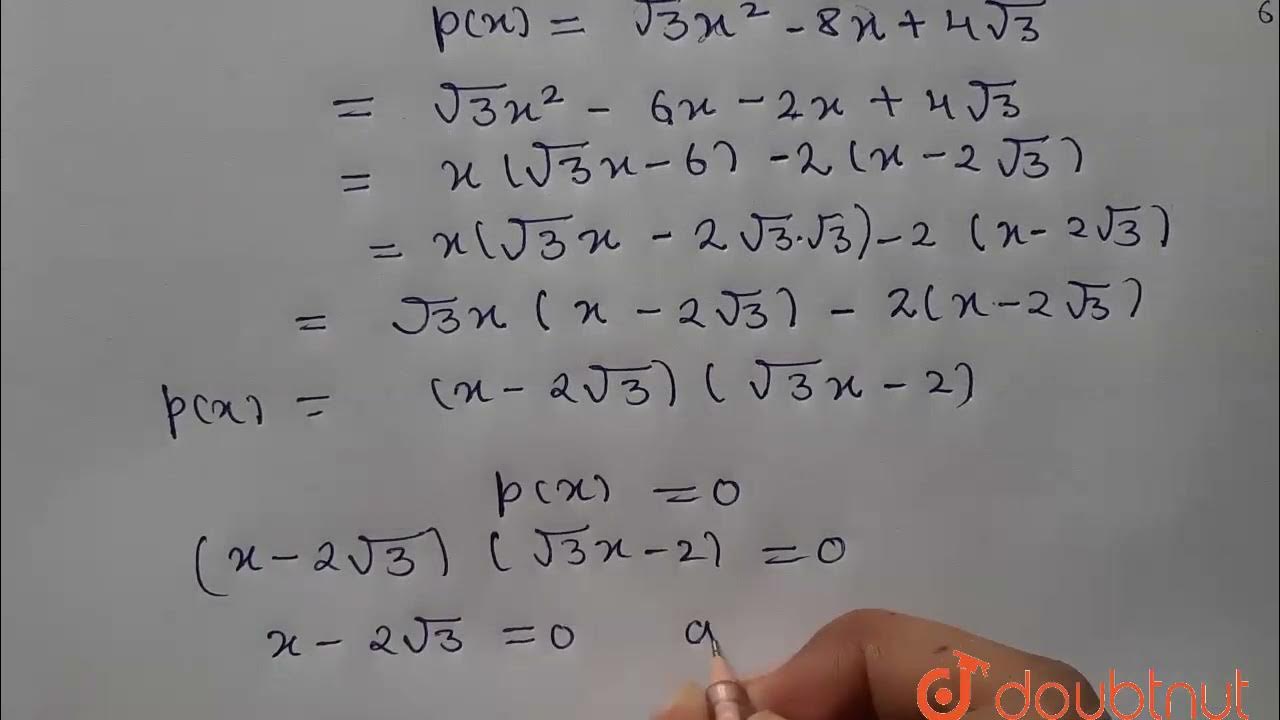 p(x) = √3x² - 8x + 4√3
6
= √3x² - 6x - 2x + 4√3
= x(√3x - 6) - 2(x - 2√3)
= x(√3x - 2√3·√3) - 2 (x - 2√3)
= √3x (x - 2√3) - 2(x - 2√3)
p(x) = (x - 2√3) (√3x - 2)
p(x) = 0
(x - 2√3) (√3x - 2) = 0
x - 2√3 = 0 a
doubtnut